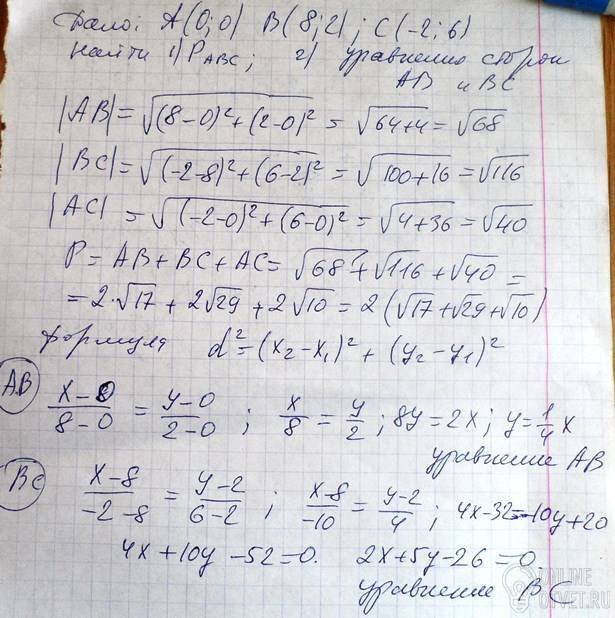 Дано: A(0;0) B(8;2); C(-2;6)
Найти 1) P_ABC; 2) уравнение сторон
AB и BC
|AB| = √((8-0)²+(2-0)²) = √(64+4) = √68
|BC| = √((-2-8)²+(6-2)²) = √(100+16) = √116
|AC| = √((-2-0)²+(6-0)²) = √(4+36) = √40
P = AB + BC + AC = √68 + √116 + √40 =
= 2·√17 + 2√29 + 2√10 = 2(√17+√29+√10)
формула d² = (x₂-x₁)² + (y₂-y₁)²
AB (x-0)/(8-0) = (y-0)/(2-0); x/8 = y/2; 8y = 2x; y = 1/4 x
уравнение AB
BC (x-8)/(-2-8) = (y-2)/(6-2); (x-8)/(-10) = (y-2)/4; 4x-32=-10y+20
4x+10y-52=0. 2x+5y-26=0
уравнение BC
ONLINE
OTVET.RU